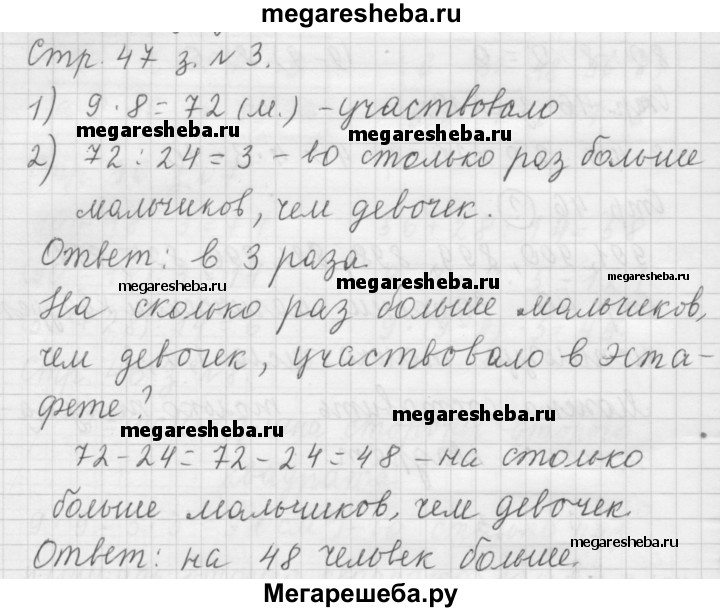 megaresheba.ru
Стр. 47 з. № 3.
1) 9 · 8 = 72 (м.) - участвовало
megaresheba.ru megaresheba.ru
2) 72 : 24 = 3 - во столько раз больше
мальчиков, чем девочек.
Ответ: в 3 раза.
megaresheba.ru megaresheba.ru megaresheba.ru
На сколько раз больше мальчиков,
чем девочек, участвовало в эста-
фете?
megaresheba.ru
megaresheba.ru
72 - 24 = 72 - 24 = 48 - на столько
больше мальчиков, чем девочек.
Ответ: на 48 человек больше.
megaresheba.ru
Мегарешеба.ру